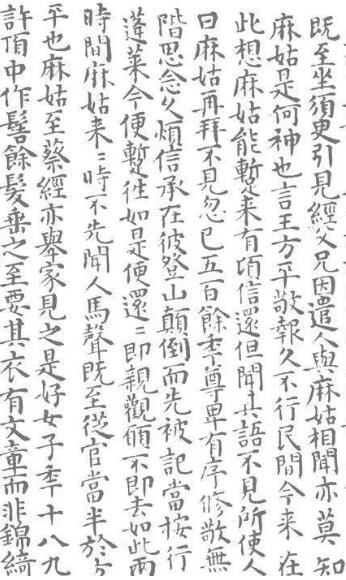 既至坐須臾引見經父兄因遣人與麻姑相聞亦莫知
麻姑是何神也言王方平敬報久不行民間今来在
此想麻姑能蹔来有頃信還但聞其語不見所使人
曰麻姑再拜不見忽已五百餘秊尊卑有序修敬無
階思念久煩信承在彼登山顛倒而先被記當按行
蓬萊今便蹔往如是便還〻即親觀願不即去如此兩
時間麻姑来〻時不先聞人馬聲既至從官當半於方
平也麻姑至蔡經亦舉家見之是好女子秊十八九
許頂中作髻餘髮垂之至要其衣有文章而非錦綺